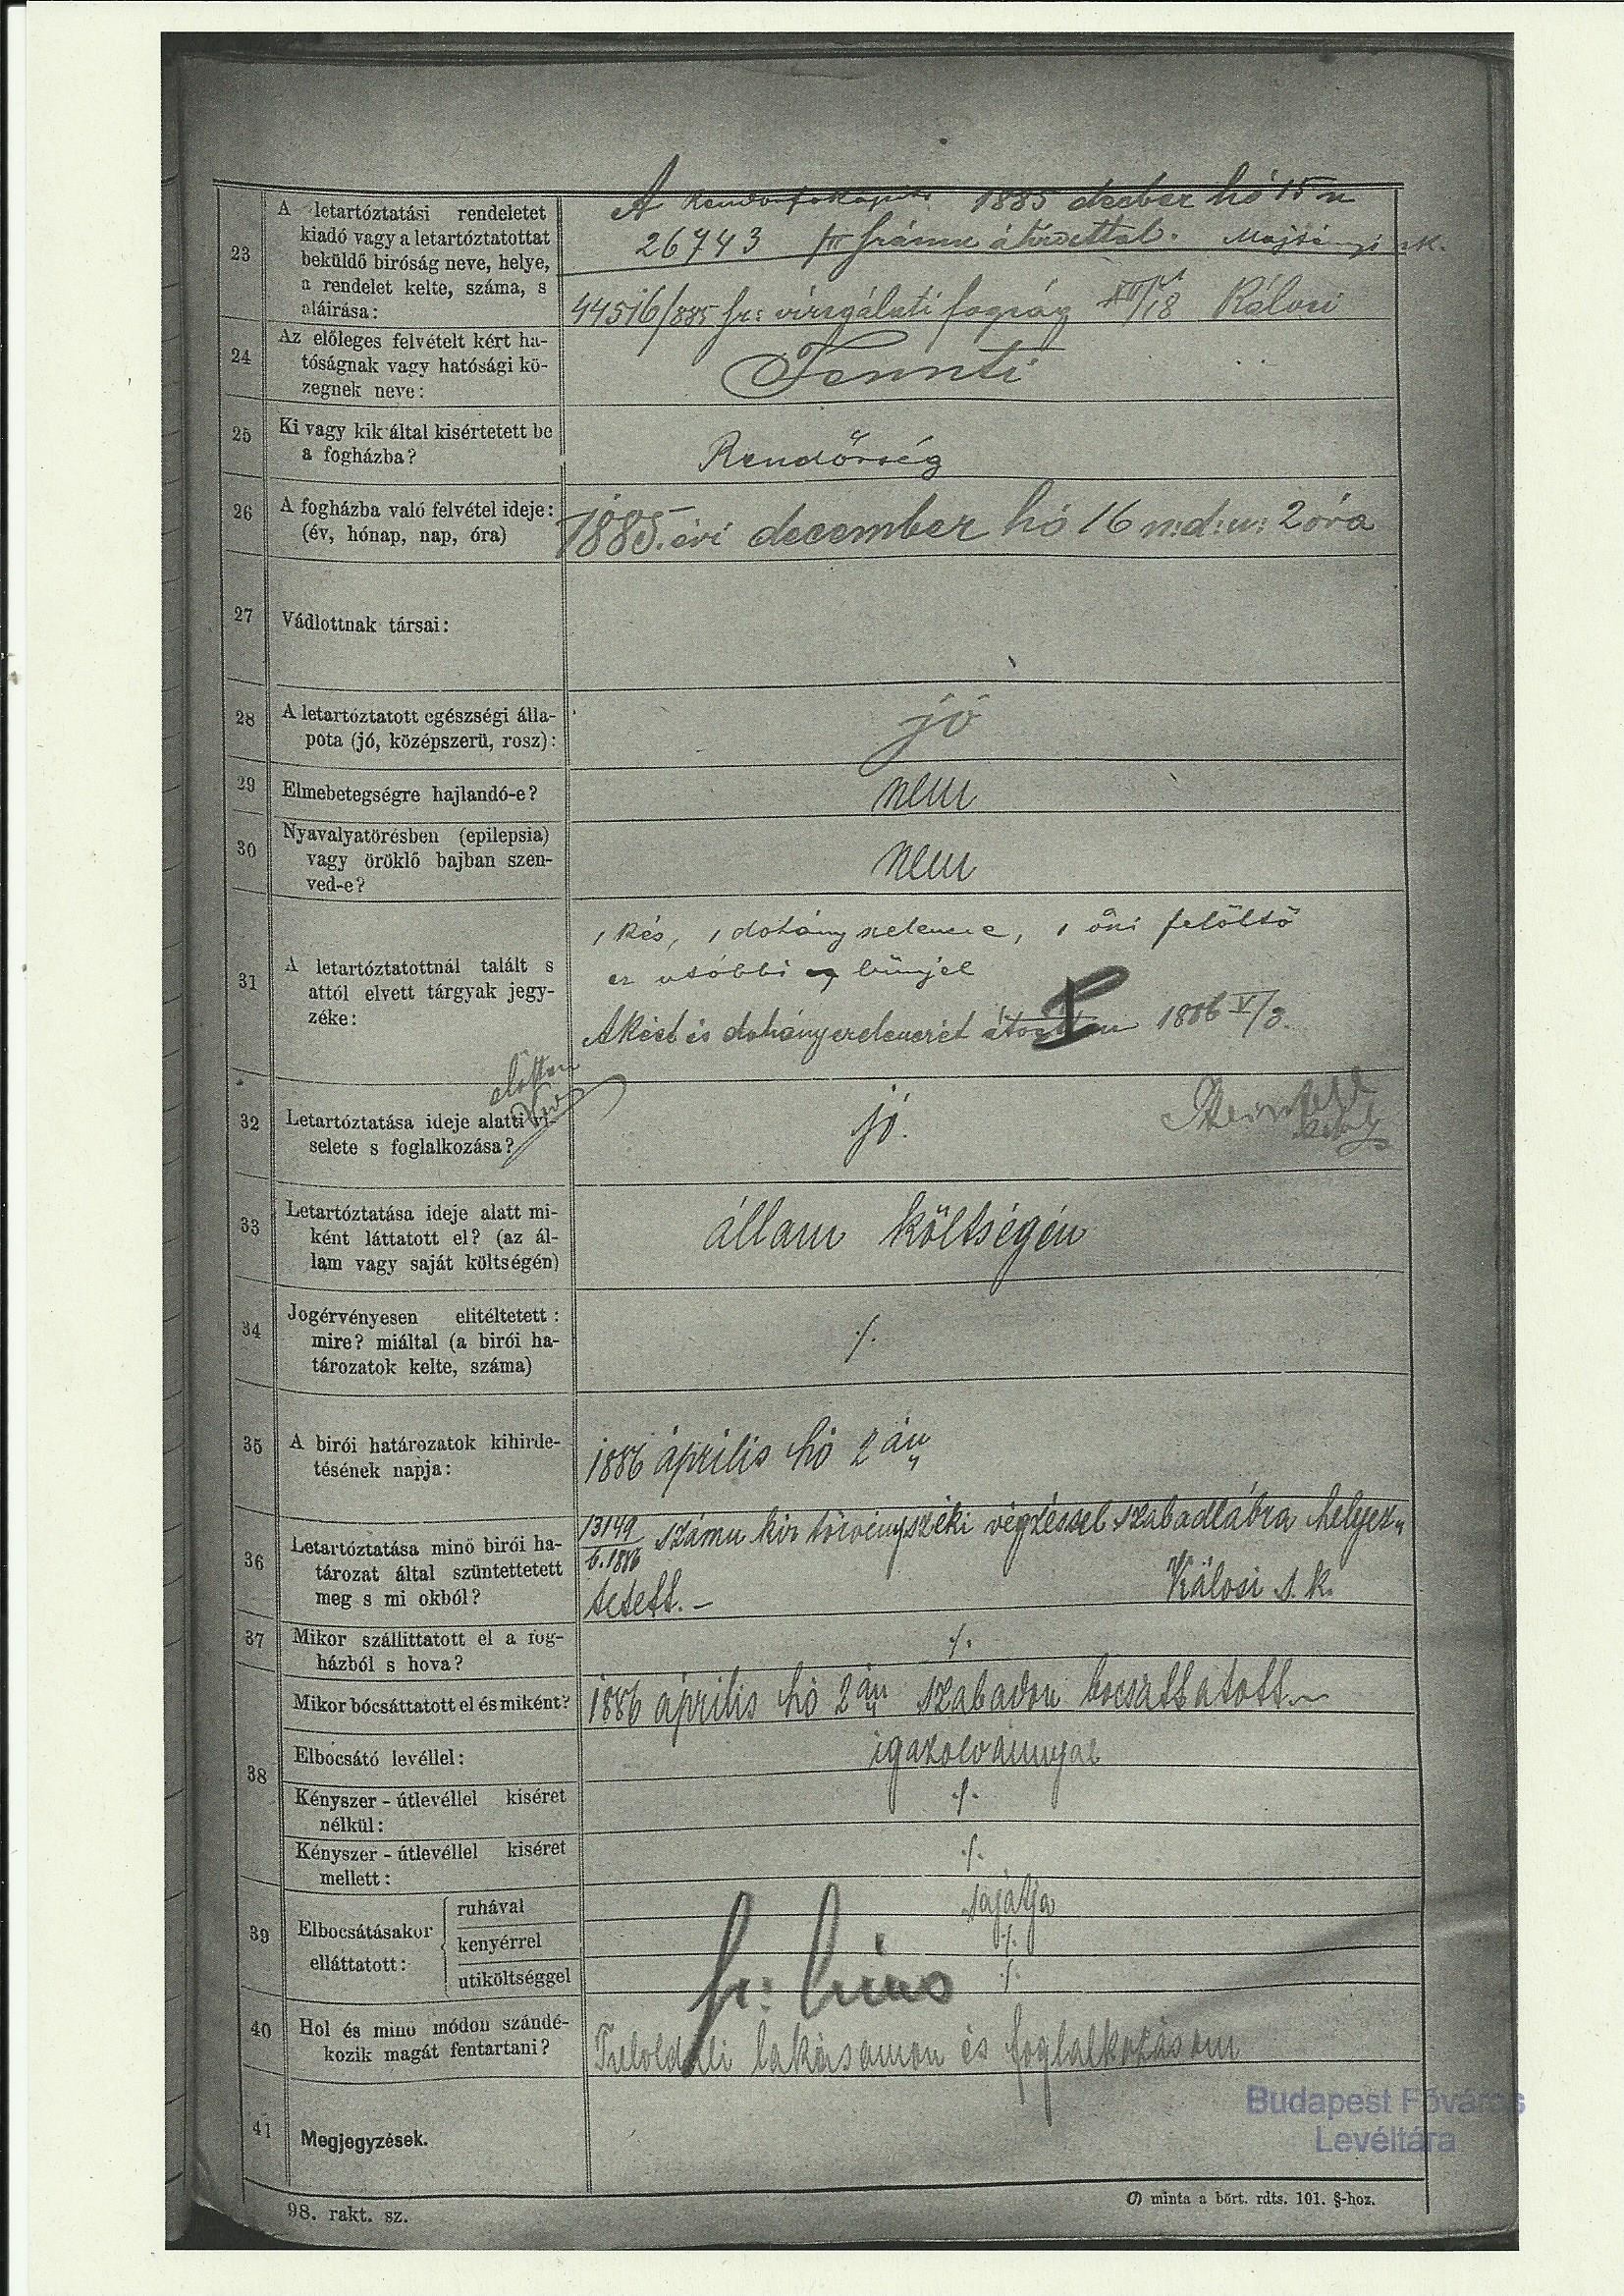 23 A letartóztatási rendeletet
kiadó vagy a letartóztatottat
beküldő biróság neve, helye,
a rendelet kelte, száma, s
aláirása:
A 1885 decber hó 15 n
26743 számu átirattal.
44516/885 sz: vizsgálati fogság XII/18
24 Az előleges felvételt kért ha-
tóságnak vagy hatósági kö-
zegnek neve:
Fennti
25 Ki vagy kik által kisértetett be
a fogházba?
Rendőrség
26 A fogházba való felvétel ideje:
(év, hónap, nap, óra)
1885. évi december hó 16 n: d: u: 2 óra
27 Vádlottnak társai:
28 A letartóztatott egészségi álla-
pota (jó, középszerü, rosz):
jó
29 Elmebetegségre hajlandó-e?
nem
30 Nyavalyatörésben (epilepsia)
vagy öröklő bajban szen-
ved-e?
nem
31 A letartóztatottnál talált s
attól elvett tárgyak jegy-
zéke:
1 kés, 1 dohány szelencze, 1 őszi felöltő
ez utóbbi bünjel
A kést és dohányszelenczét 1886 V/3.
előttem
32 Letartóztatása ideje alatti vi-
selete s foglalkozása?
jó.
33 Letartóztatása ideje alatt mi-
ként láttatott el? (az ál-
lam vagy saját költségén)
állam költségén
34 Jogérvényesen elitéltetett:
mire? miáltal (a birói ha-
tározatok kelte, száma)
./.
35 A birói határozatok kihirde-
tésének napja:
1886 április hó 2 án
36 Letartóztatása minő birói ha-
tározat által szüntettetett
meg s mi okból?
13149/b.1886 számu kir törvényszéki végzéssel szabadlábra helyez„
tetett. –
Kálosi s. k.
37 Mikor szállittatott el a fog-
házból s hova?
./.
38 Mikor bócsáttatott el és miként?
1886 április hó 2 án szabadon bocsáttatott. –
Elbocsátó levéllel:
igazolvánnyal
Kényszer-útlevéllel kiséret
nélkül:
./.
Kényszer-útlevéllel kiséret
mellett:
./.
39 Elbocsátásakor
elláttatott:
ruhával
sajátja
kenyérrel
./.
utiköltséggel
./.
40 Hol és minő módon szándé-
kozik magát fentartani?
Tuloldali lakásamon és foglalkozásom
41 Megjegyzések.
Budapest Főváros
Levéltára
98. rakt. sz.
minta a bört. rdts. 101. §-hoz.